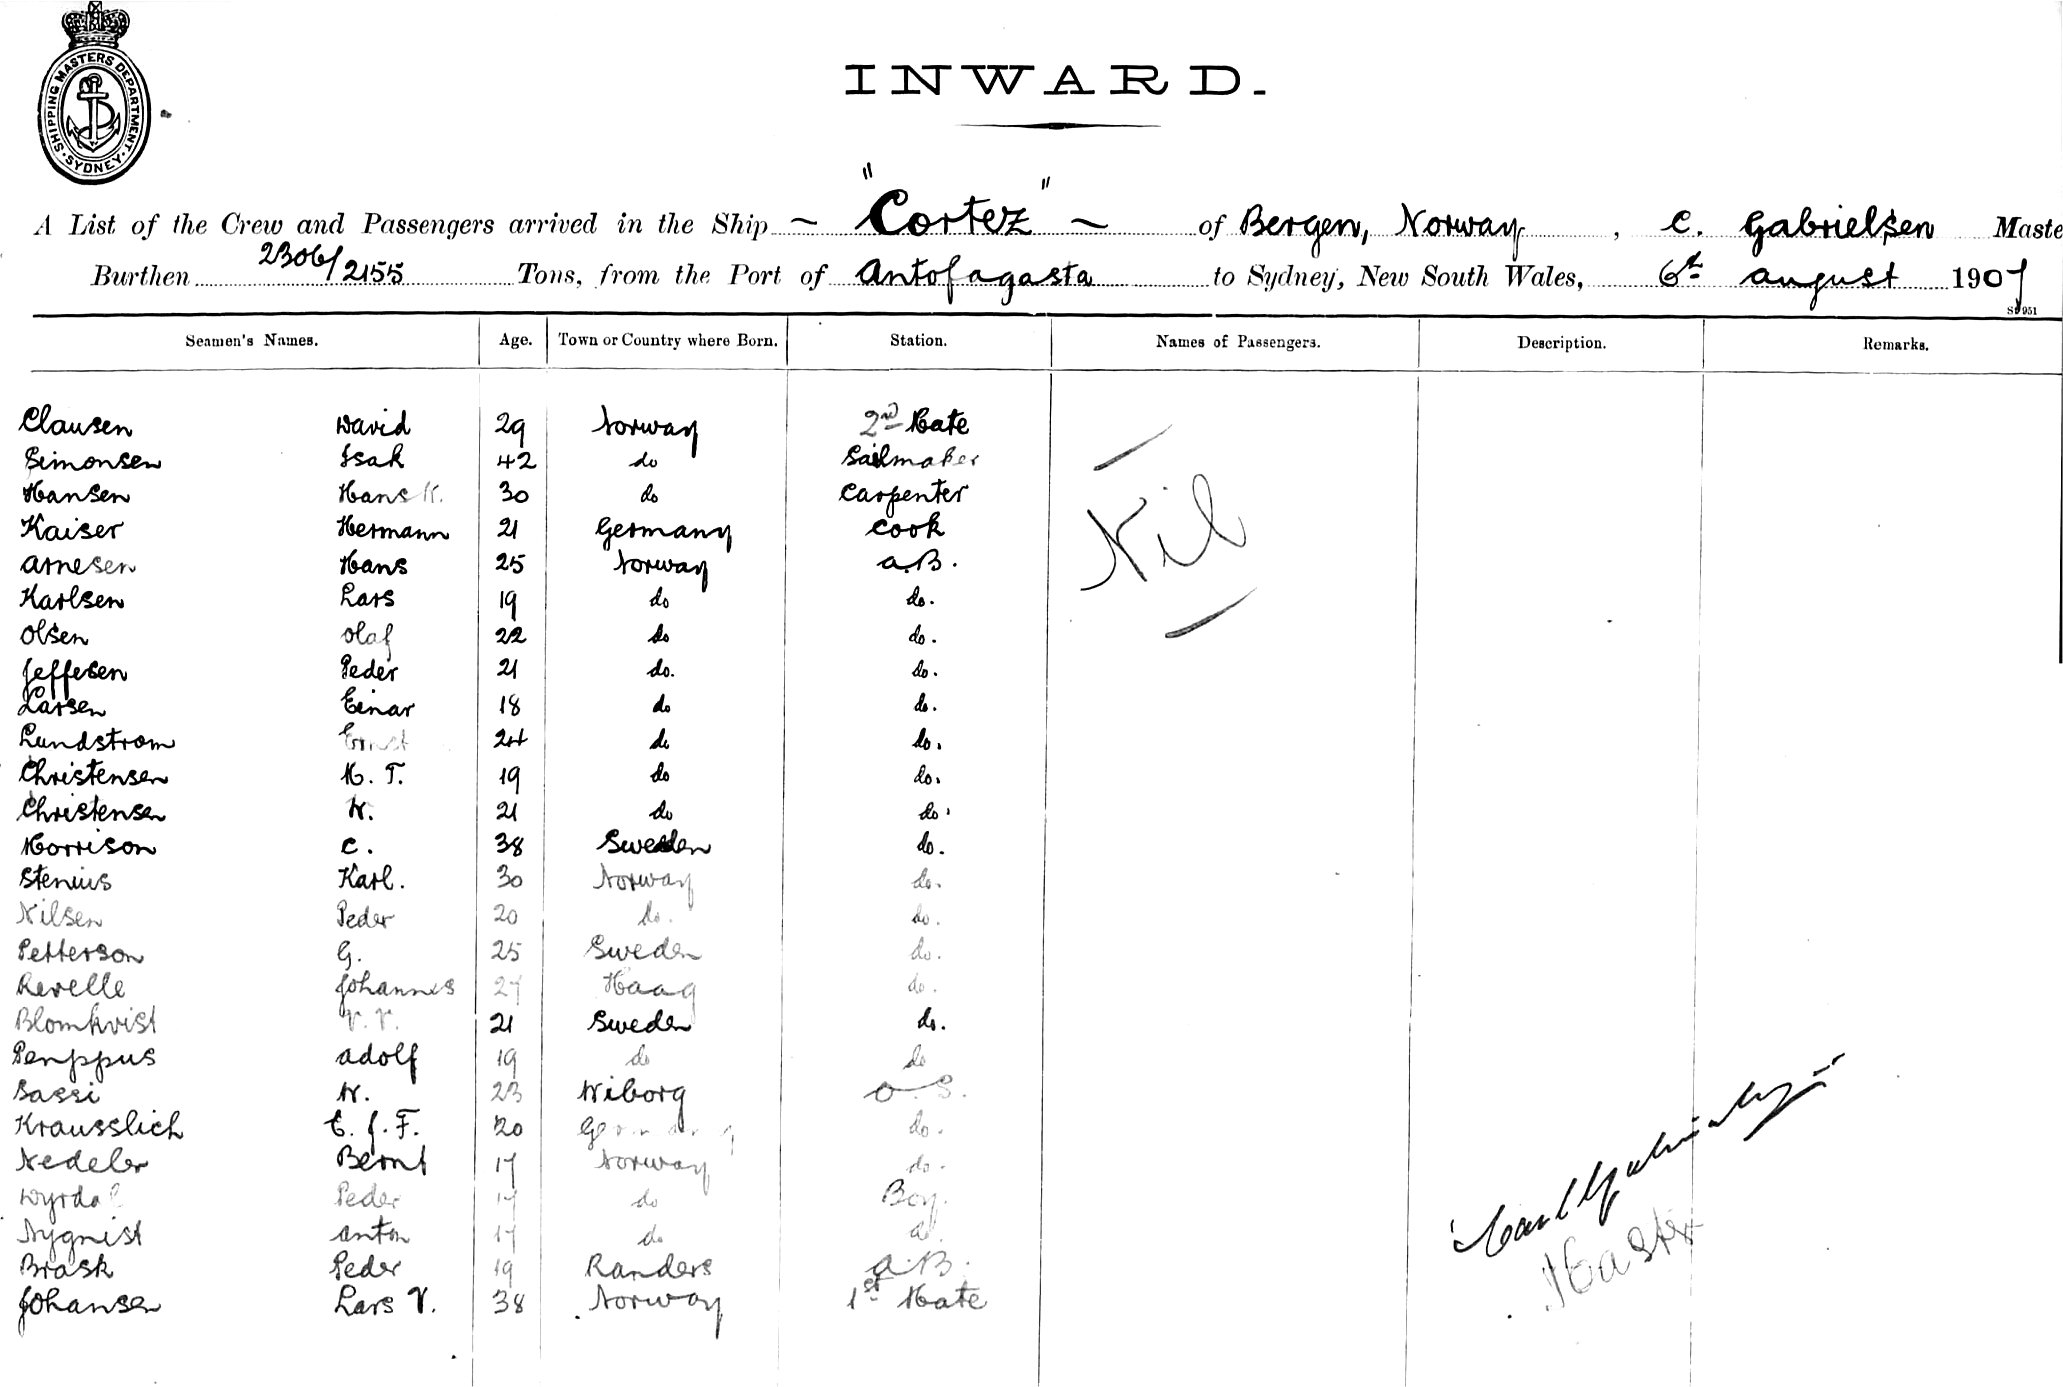 SHIPPING MASTERS DEPARTMENT. SYDNEY
INWARD.
A List of the Crew and Passengers arrived in the Ship ~ "Cortez" ~ of Bergen, Norway, C. Gabrielsen Maste
Burthen 2306/2155 Tons, from the Port of Antofagasta to Sydney, New South Wales, 6th august 1907
Seamen's Names. Age. Town or Country where Born. Station. Names of Passengers. Description. Remarks.
Clausen David 29 Norway 2nd Mate
Simonsen Isak 42 do Sailmaker
Hansen Hans K. 30 do Carpenter
Kaiser Hermann 21 Germany Cook
Arnesen Hans 25 Norway a.B.
Nil
Karlsen Lars 19 do do.
Olsen Olaf 22 do do.
Jeffesen Peder 21 do. do.
Larsen Einar 18 do do.
Lundstrom Ernst 24 do do.
Christensen H. T. 19 do do.
Christensen N. 21 do do.
Morrison C. 38 Sweden do.
Stenius Karl. 30 Norway do.
Nilsen Peder 20 do. do.
Petterson G. 25 Sweden do.
Revelle Johannes 27 Haag do.
Blomkvist V. V. 21 Sweden do.
Penppus adolf 19 do do
Sassi N. 23 Wiborg O.S.
Krausslich E. J. F. 20 Germany do.
Nedeler Bernt 17 Norway do.
Wyrdal Peder 17 do Boy.
Nyqnist anton 17 do do
Brask Peder 19 Randers a.B.
Johansen Lars V. 38 Norway 1st Mate
Carl Gabrielsen
Master